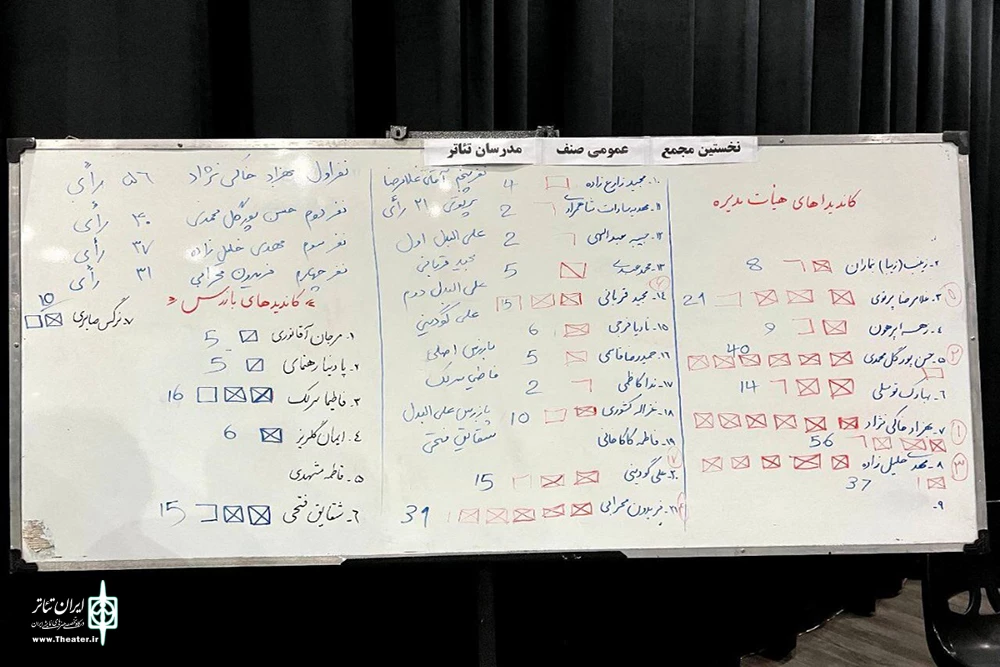 نخستین مجمع عمومی صنف مدرسان تئاتر
کاندیداهای هیأت مدیره
۲- زینب (زیبا) نماران 8
۳- غلامرضا پرتوی 21
۴- زهرا پرحون 9
۵- حسن پورگل محمدی 40
۶- مبارک توسلی 14
۷- بهزاد خاکی نژاد
56
۸- مهدی خلیل زاده
37
۹-
۱۰- مجید زارع زاده 4
۱۱- سادات 2
۱۲- عبدالهی 2
۱۳- محمد 5
۱۴- مجید قربانی 15
۱۵- نادیا فرجی 6
۱۶- حمیدرضا قاسمی 5
۱۷- ندا کاظمی 2
۱۸- غزاله کشوری 10
۱۹- فاطمه کاکاخانی
۲۰- علی گودینی 15
۲۱- فریدون محرابی 31
نفر پنجم آقای غلامرضا
پرتوی ۲۱ رأی
علی البدل اول
مجید قربانی
علی البدل دوم
علی گودینی
بازرس اصلی
فاطیما سربک
بازرس علی البدل
شقایق فتحی
نفر اول بهزاد خاکی نژاد ۵۶ رأی
نفر دوم حسن پورگل محمدی ۴۰ رأی
نفر سوم مهدی خلیل زاده ۳۷ رأی
نفر چهارم فریدون محرابی ۳۱ رأی
کاندیدهای بازرس
۱. مرجان آقانوری 5
۲. پادینا رهنمای 5
۳. فاطیما سربک 16
۴. ایمان گلریز 6
۵. فاطمه مشهدی
۶. شقایق فتحی 15
۷. نرگس صابری 10
ایران تئاتر
www.Theater.ir